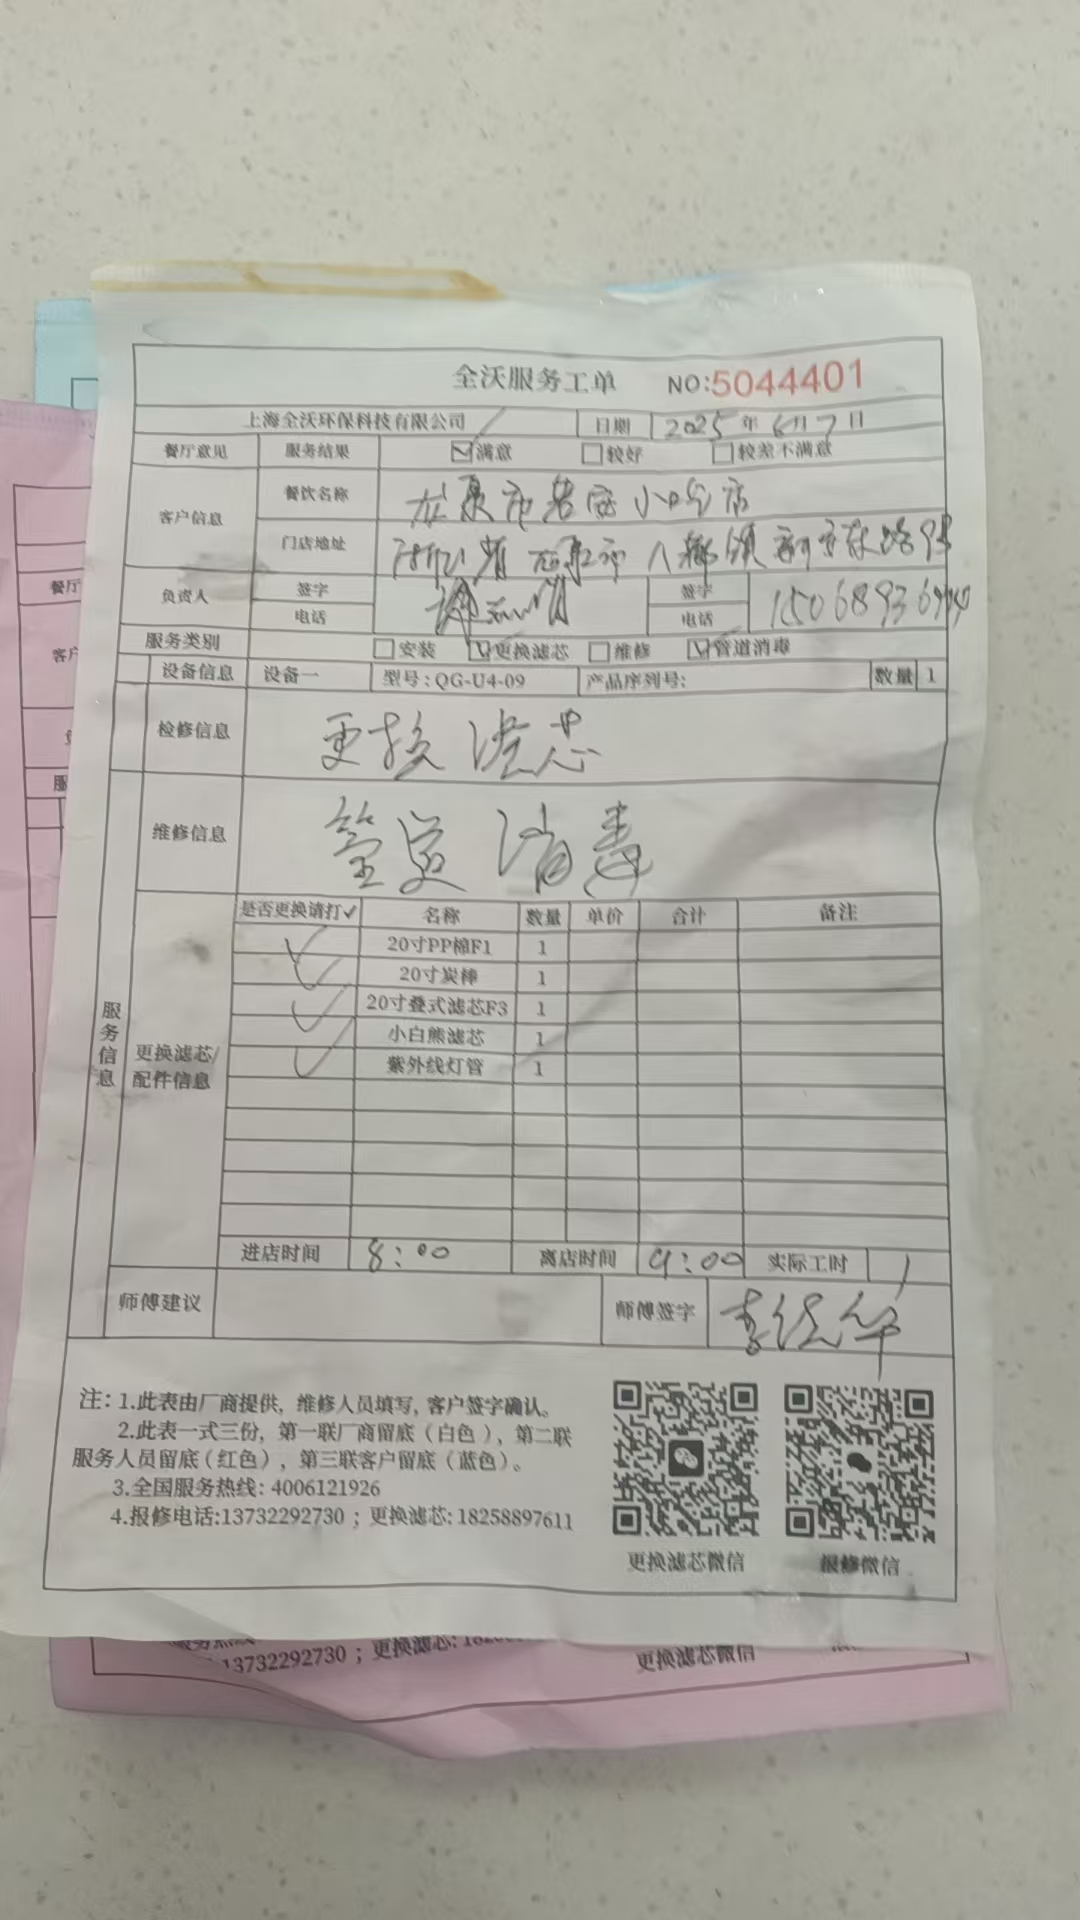 全沃服务工单 NO:5044401
上海全沃环保科技有限公司 日期 2025年6月7日
餐厅意见 服务结果 满意 较好 较差不满意
客户信息 餐饮名称 小吃店
门店地址 浙江省龙泉市八都镇新京东路9号
负责人 签字 签字
电话 电话
服务类别 安装 更换滤芯 维修 管道消毒
设备信息 设备一 型号:QG-U4-09 产品序列号: 数量 1
检修信息 更换滤芯
维修信息 管道消毒
服务信息
更换滤芯/配件信息
是否更换请打✓ 名称 数量 单价 合计 备注
✓ 20寸PP棉F1 1
✓ 20寸炭棒 1
✓ 20寸叠式滤芯F3 1
小白熊滤芯 1
✓ 紫外线灯管 1
进店时间 8:00 离店时间 9:00 实际工时 1
师傅建议 师傅签字
注: 1.此表由厂商提供, 维修人员填写, 客户签字确认。
2.此表一式三份, 第一联厂商留底(白色), 第二联
服务人员留底(红色), 第三联客户留底(蓝色)。
3.全国服务热线: 4006121926
4.报修电话:13732292730 ; 更换滤芯: 18258897611
更换滤芯微信 报修微信
13732292730 ; 更换滤芯:
更换滤芯微信